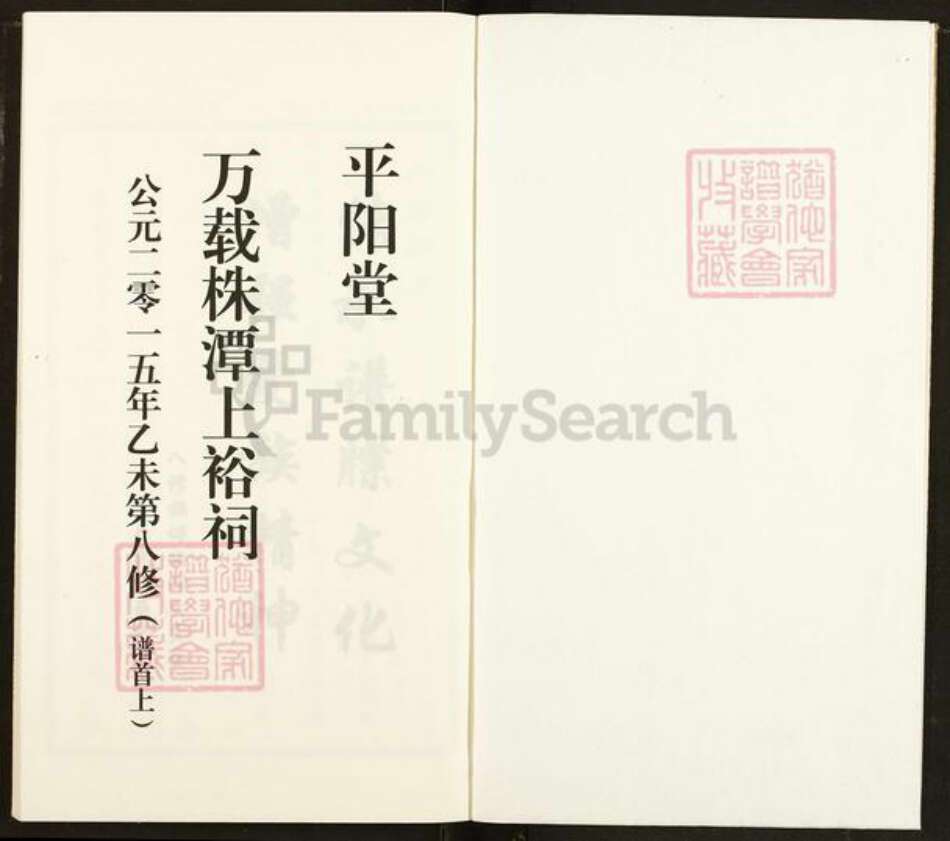 平阳堂
万载株潭上裕祠
公元二零一五年乙未第八修（谱首上）
FamilySearch
猶他家
譜學會
收藏
猶他家
譜學會
收藏